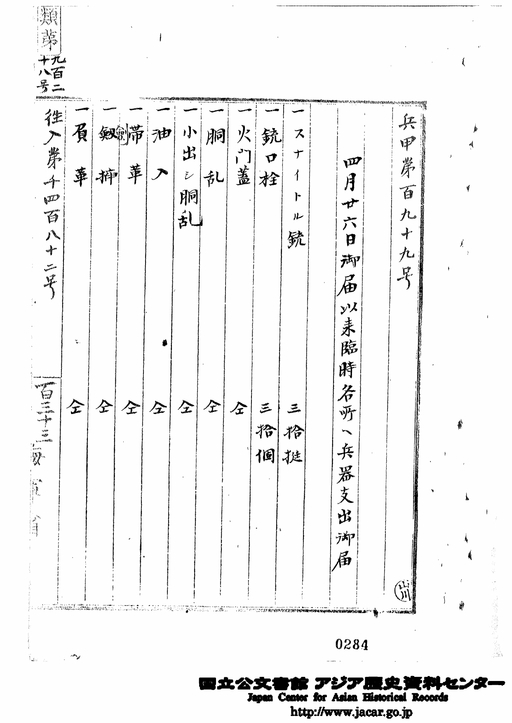 兵甲第百九十九号
四月廿六日御届以来臨時各所ヘ兵器支出御届
一スナイトル銃 三拾挺
一銃口栓 三拾個
一火門蓋 仝
一胴乱 仝
一小出シ胴乱 仝
一油入 仝
一劍帯革 仝
一劔挿 仝
一負革 仝
往入第千四百八十二号
百三十三
類第九百二十八号
0284
国立公文書館 アジア歴史資料センター
Japan Center for Asian Historical Records
http://www.jacar.go.jp